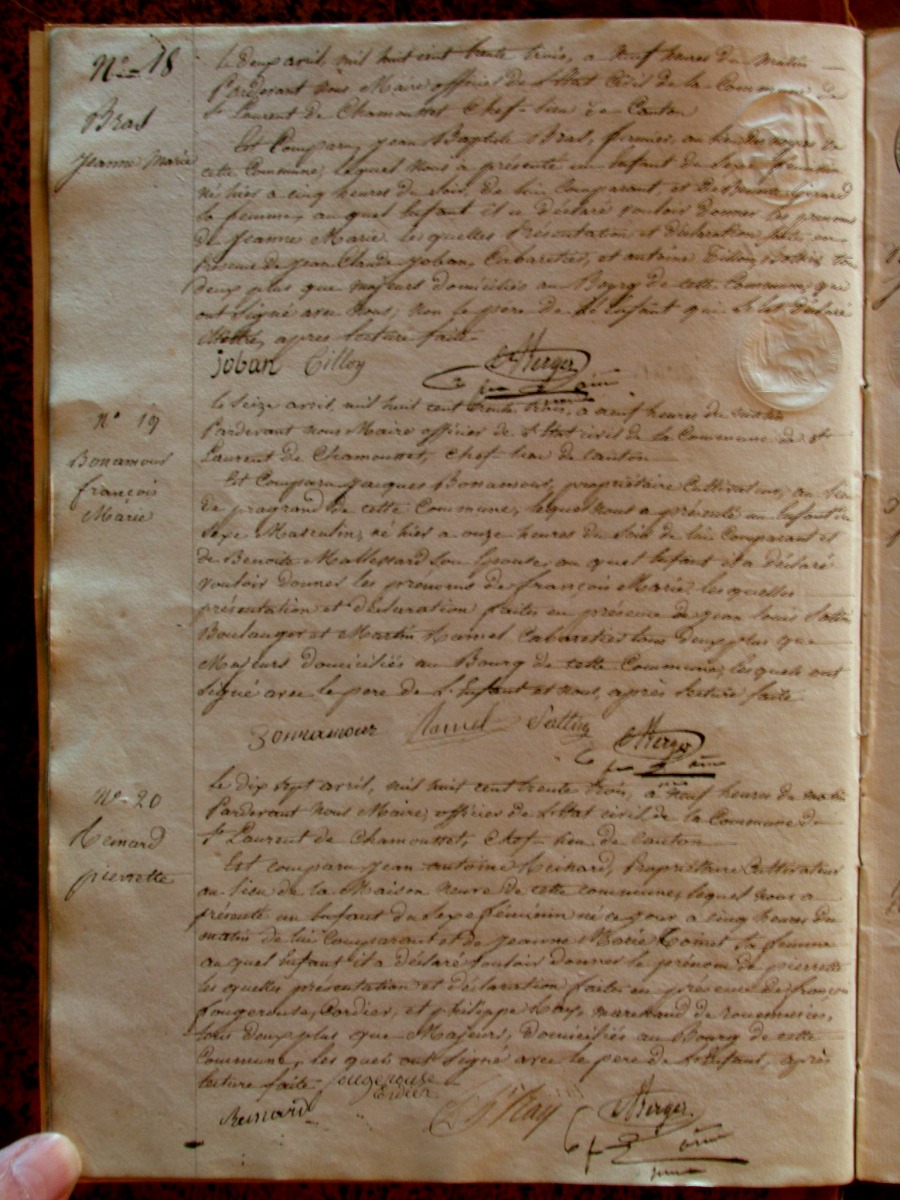 N° 18
Bral
Jeanne Marie
Le deux avril mil huit cent trente trois, a neuf heures du matin
Pardevant nous Maire officier de l'Etat Civil de la Commune de
St Laurent de Chamousset Chef-lieu de Canton
Est Comparu, Jean Baptiste Bral, fermier, au lieu
cette Commune, lequel nous a présenté un Enfant du Sexe féminin
né hier a cinq heures du Soir, de lui Comparant et de Girard
sa femme, au quel Enfant il a déclaré vouloir donner les prenoms
de Jeanne Marie les quelles Présentation et déclaration faites en
Présence de Jean Claude Joban, Cabaretier, et antoine Tilloy tous
deux plus que majeurs domiciliés au Bourg de cette Commune, qui
ont Signé avec nous, non le pere de l'Enfant qui déclaré
apres lecture faite
joban Tilloy Merger
N° 19
Bonamour
françois
Marie
Le Seize avril, mil huit cent trente trois, a neuf heures du matin
Pardevant nous Maire officier de l'Etat civil de la Commune de St
Laurent de Chamousset, Chef-lieu de Canton
Est Comparu Jacques Bonamour, propriétaire Cultivateur, au lieu
de pragrand de cette Commune, lequel nous a présenté un Enfant du
Sexe Masculin, né hier a onze heures du Soir de lui Comparant et
de Benoite Son Epouse, au quel Enfant il a déclaré
vouloir donner les prenoms de françois Marie, les quelles
présentation et déclaration faites en présence de Jean Louis
Boulanger et Martin Hamel Cabaretier tous deux plus que
Majeurs domiciliés au Bourg de cette Commune, lesquels ont
Signé avec le pere de l'Enfant et nous, après lecture faite
Bonnamour Hamel Merger
N° 20
pierrette
Le dix sept avril, mil huit cent trente trois, a neuf heures du matin
Pardevant nous Maire, officier de l'Etat civil de la Commune de
St Laurent de Chamousset, Chef-lieu de Canton
Est comparu Jean antoine Propriétaire Cultivateur
au lieu de la Maison neuve de cette commune, lequel nous a
présenté un Enfant du Sexe féminin né ce jour a cinq heures du
matin de lui Comparant et de Jeanne Marie sa femme
au quel Enfant il a déclaré vouloir donner le prénom de pierrette
les quelles présentation et déclaration faites en présence de françois
fougerouse, Cordier, et philippe marchand de rouenneries,
tous deux plus que Majeurs, domiciliés au Bourg de cette
Commune, les quels ont Signé avec le pere de l'Enfant, après
lecture faite fougerouse
Merger